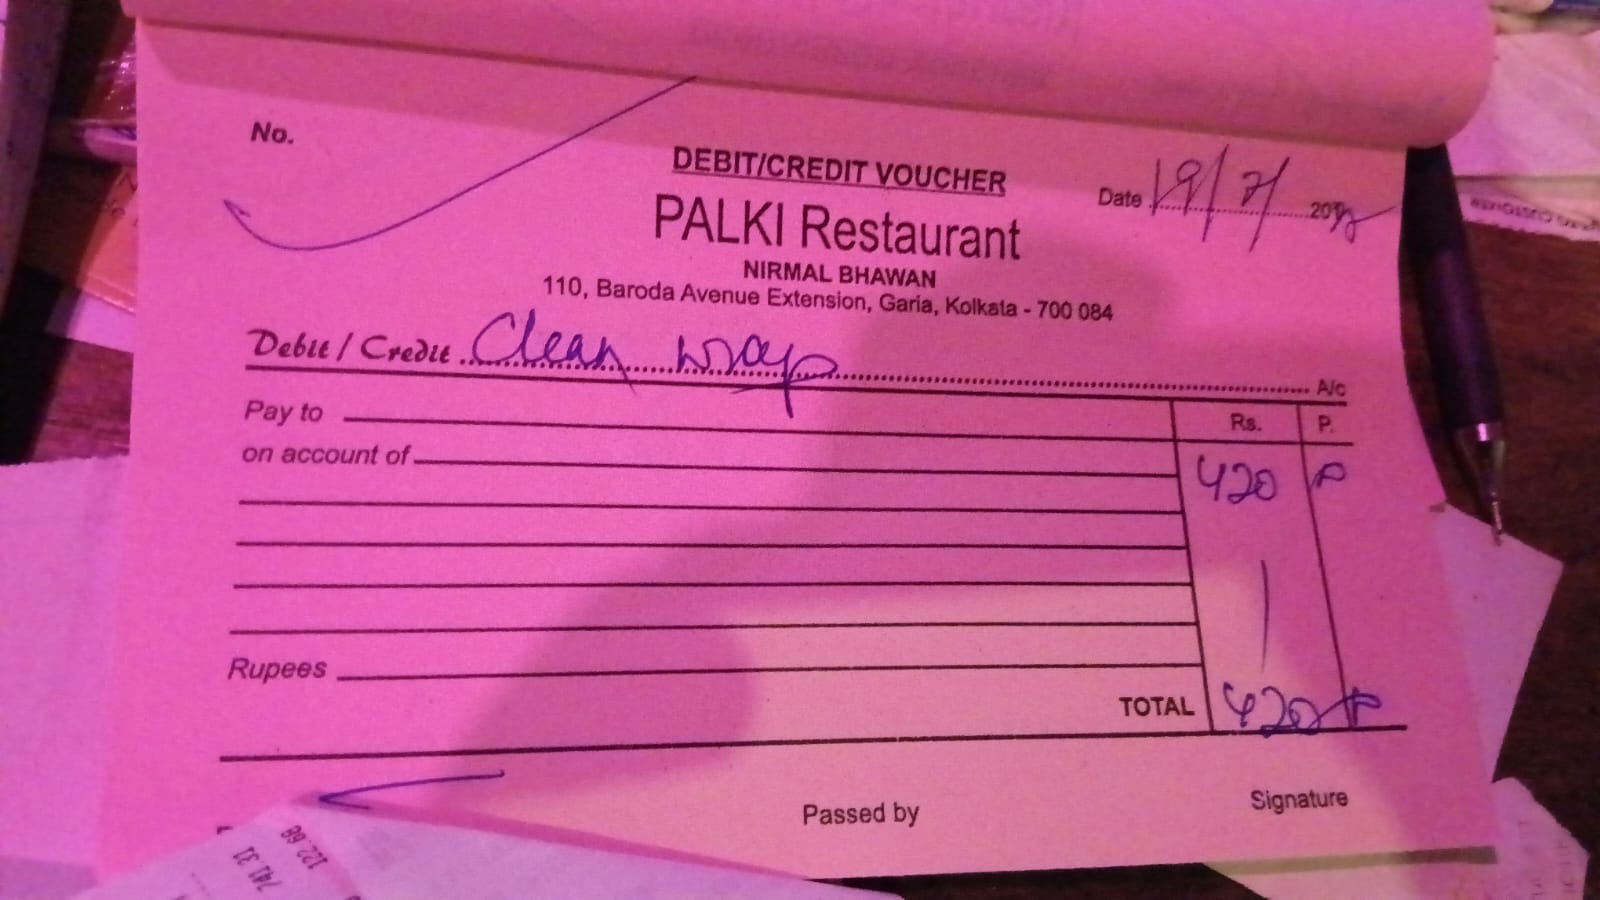 No.
DEBIT/CREDIT VOUCHER
Date 19/7/ 20
PALKI Restaurant
NIRMAL BHAWAN
110, Baroda Avenue Extension, Garia, Kolkata - 700 084
Debit / Credit Clean wrap A/c
Pay to Rs. P.
on account of
420
Rupees
TOTAL 420
Passed by Signature
122.68
741.31